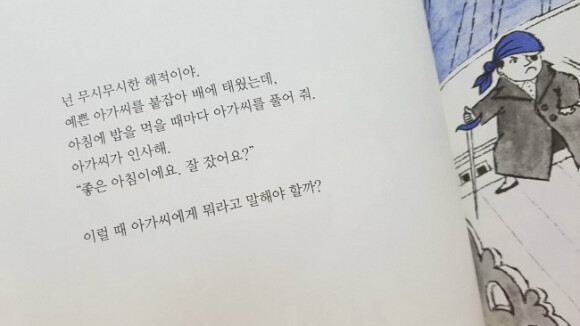 넌 무시무시한 해적이야.
예쁜 아가씨를 붙잡아 배에 태웠는데,
아침에 밥을 먹을 때마다 아가씨를 풀어 줘.
아가씨가 인사해.
“좋은 아침이에요. 잘 잤어요?”
이럴 때 아가씨에게 뭐라고 말해야 할까?